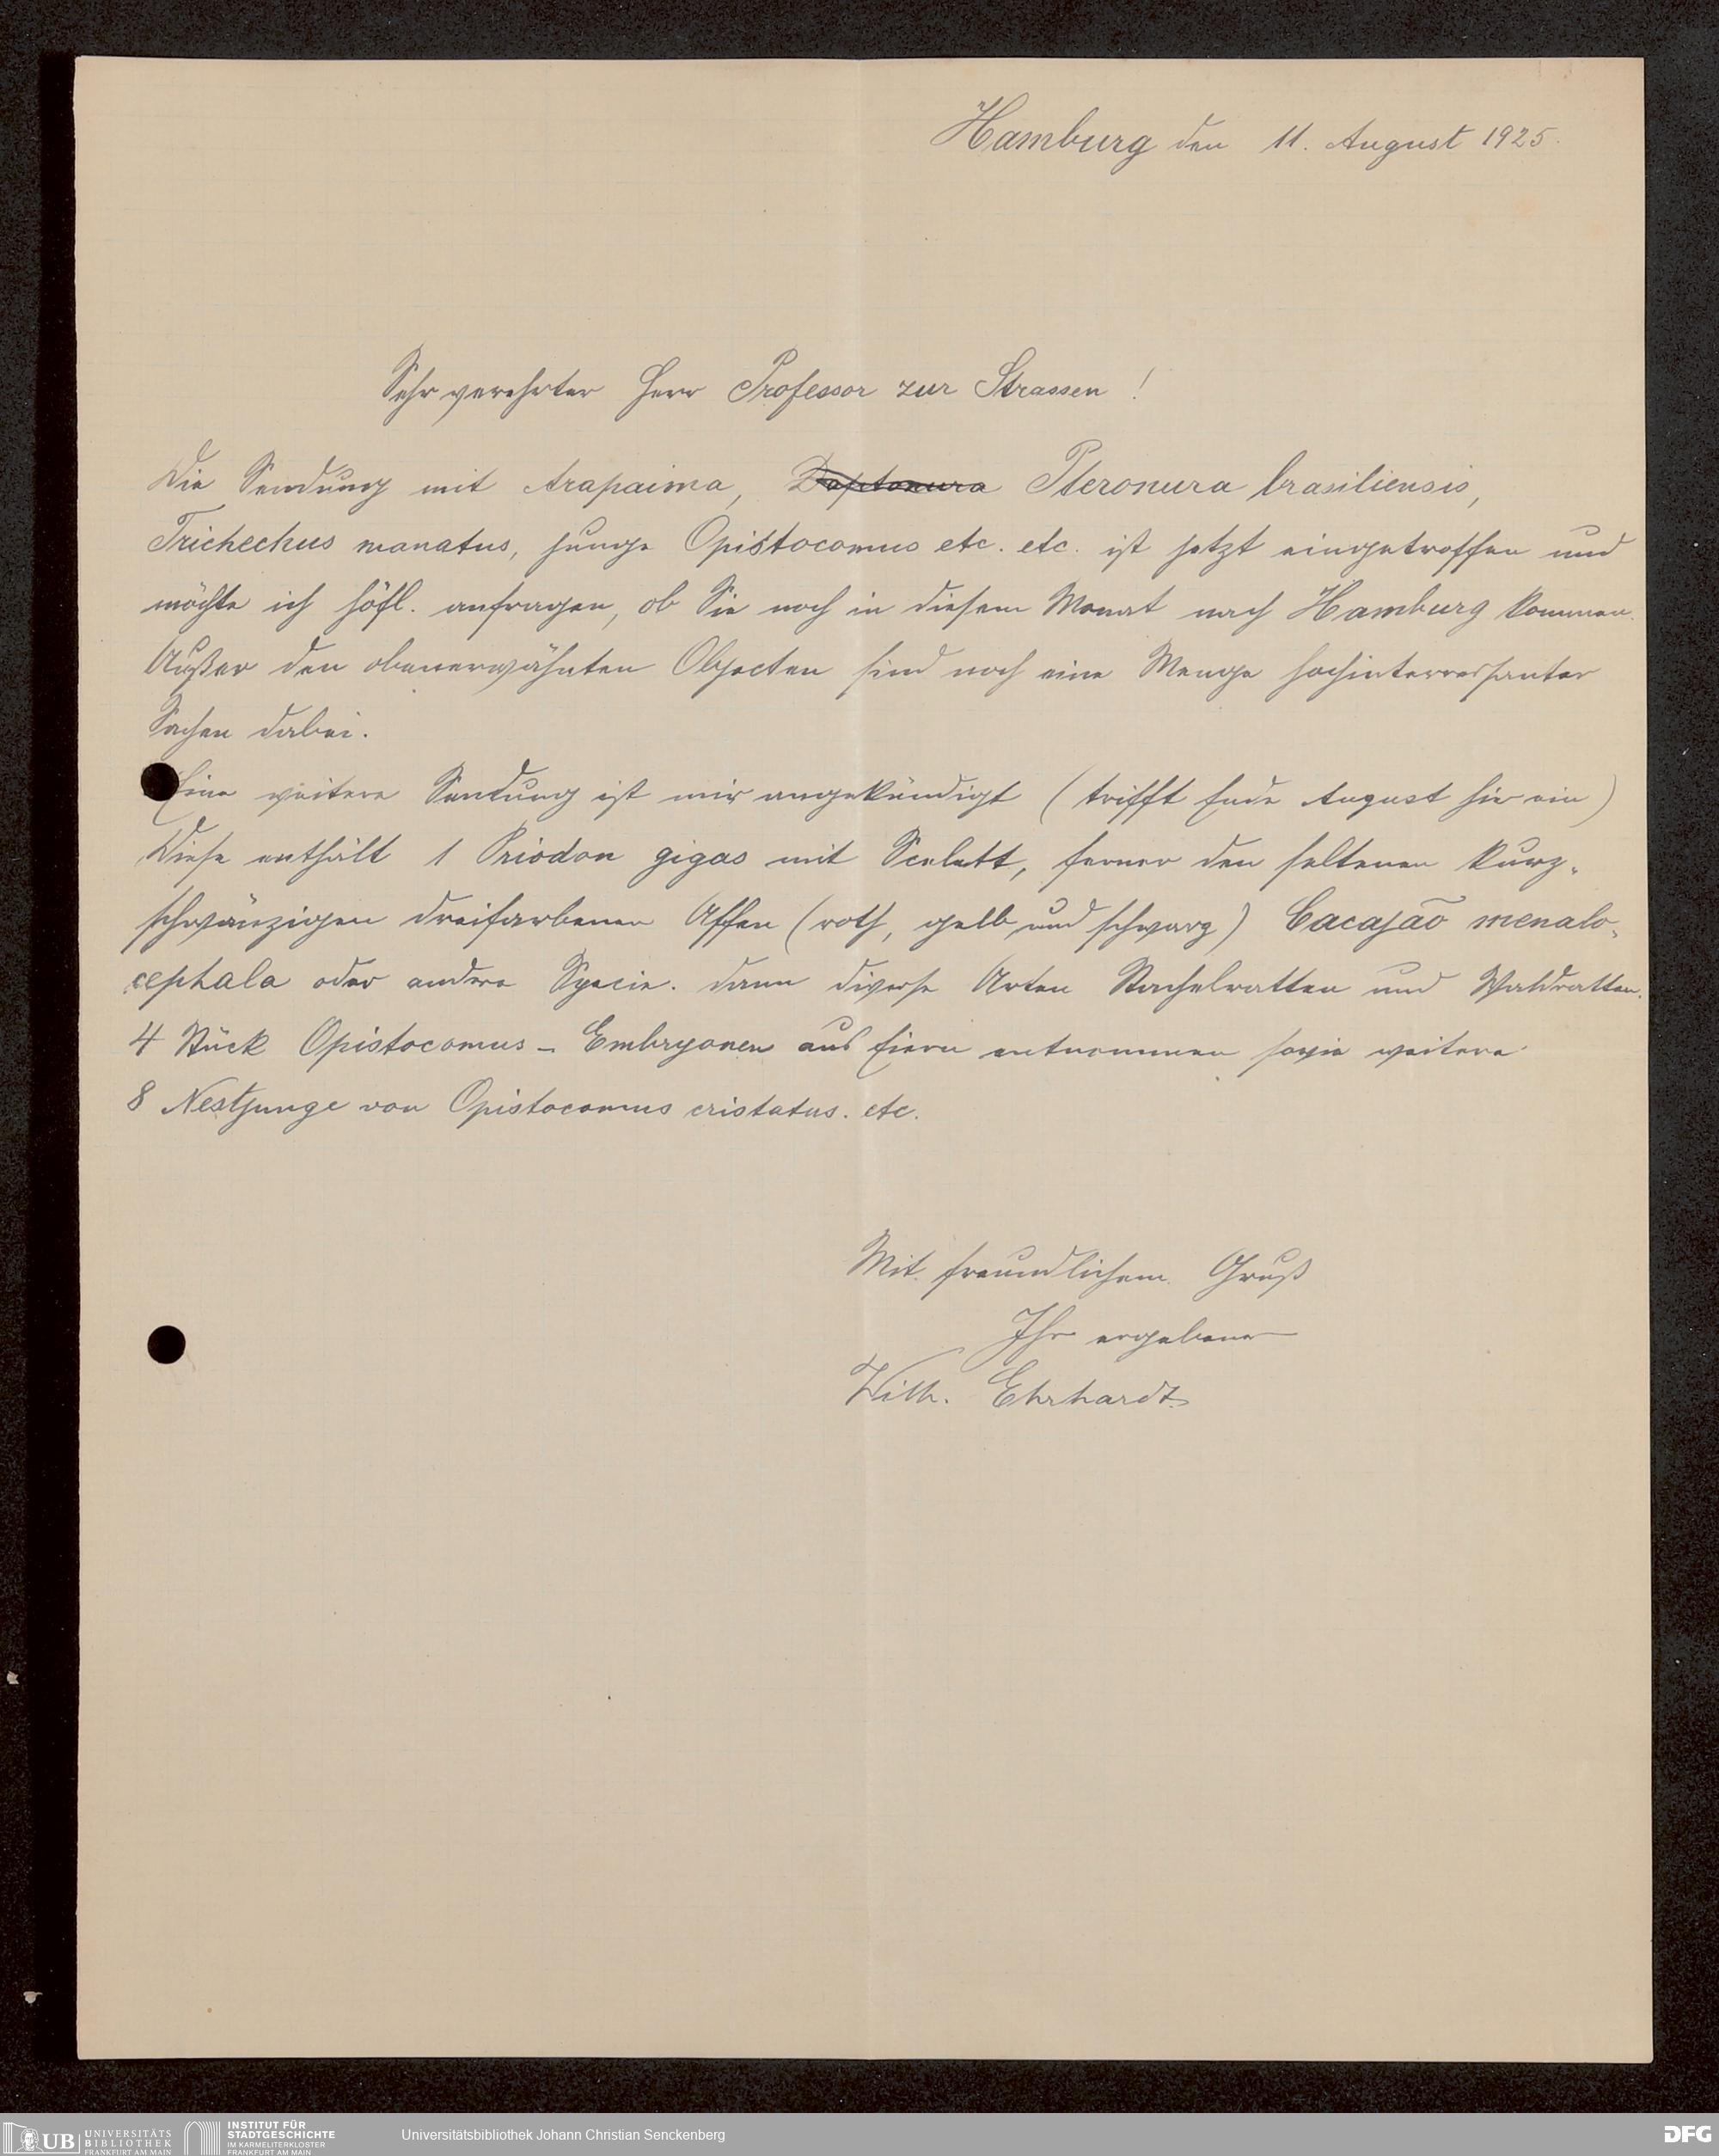 Hamburg den 11. August 1925.
Sehr verehrter Herr Professor zur Strassen!
Die Sendung mit Arapaima, Pteronura brasiliensis,
Trichechus manatus, junge Opistocomus etc. etc. ist jetzt eingetroffen und
möchte ich höfl. anfragen, ob Sie noch in diesem Monat nach Hamburg kommen.
Außer den obenerwähnten Objecten sind noch eine Menge hochinterressanter
Sachen dabei.
Eine weitere Sendung ist mir angekündigt (trifft Ende August hier ein)
Diese enthält 1 Priodon gigas mit Scelett, ferner den seltenen kurz-
schwänzigen dreifarbenen Affen (roth, gelb und schwarz) Cacajão menalo-
cephala oder andere Specie. dann diverse Arten Stachelratten und Waldratten.
4 Stück Opistocomus - Embryonen aus Eiern entnommen sowie weitere
8 Nestjunge von Opistocomus cristatus. etc.
Mit freundlichem Gruß
Ihr ergebener
Wilh. Ehrhardt.
UB UNIVERSITÄTS
BIBLIOTHEK
FRANKFURT AM MAIN
INSTITUT FÜR
STADTGESCHICHTE
IM KARMELITERKLOSTER
FRANKFURT AM MAIN
Universitätsbibliothek Johann Christian Senckenberg
DFG